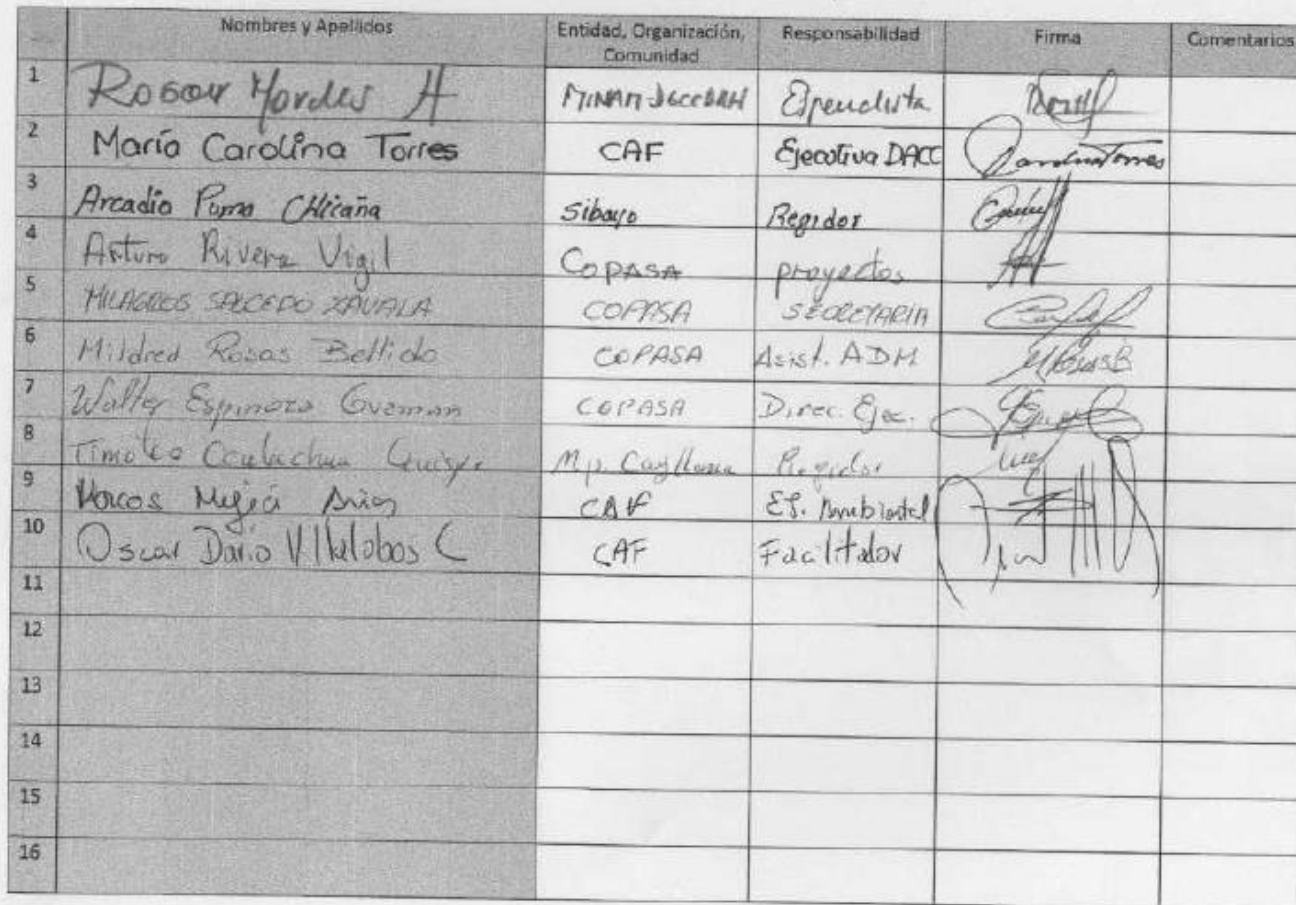 Nombres y Apellidos Entidad, Organización, Comunidad Responsabilidad Firma Comentarios
1 Morales A MINAM
2 María Carolina Torres CAF Ejecutiva DACC Carolina Torres
3 Arcadio Puma CHicaña Sibayo Regidor
4 Arturo Rivera Vigil COPASA proyectos
5 MILAGROS SALCEDO ZAVALA COPASA SECRETARIA
6 Mildred Rosas Bellido COPASA Asist. ADM MRosasB
7 Walter Espinoza Guzman COPASA Direc. Ejec.
8 Timoteo Quispe Mp. Caylloma Regidor
9 Marcos Mejía Arias CAF Ambiental
10 Oscar Dario Villalobos C CAF Facilitador
11
12
13
14
15
16